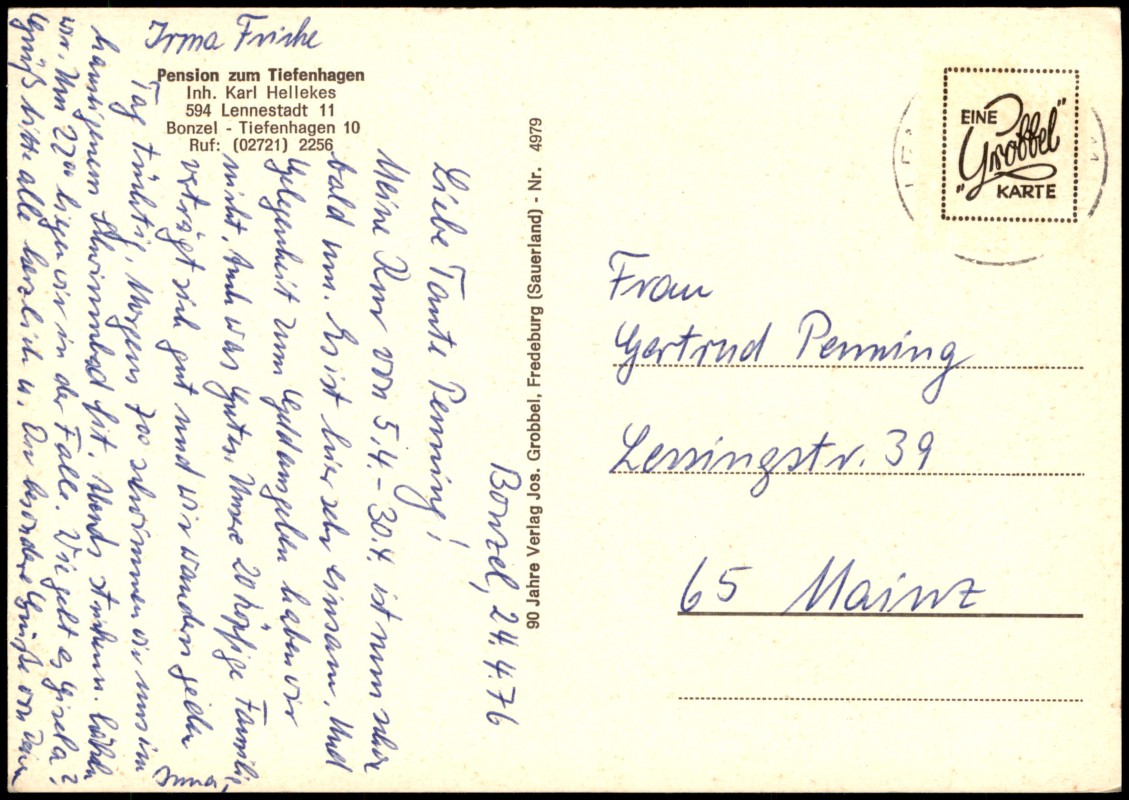 Irma Frische
Pension zum Tiefenhagen
Inh. Karl Hellekes
594 Lennestadt 11
Bonzel - Tiefenhagen 10
Ruf: (02721) 2256
Bonzel, 24.4.76
Liebe Tante Penning!
Meine Kur vom 5.4.-30.4. ist nun schon
bald um. Es ist hier sehr einsam. Und
Gelegenheit zum Geldausgeben haben wir
nicht. Auch was Gutes. Unsere 20 köpfige Familie
verträgt sich gut und wir wandern jeden
Tag tüchtig. Morgens 7oo schwimmen wir uns im
hauseigenen Schwimmbad fit. Abends
wir. Um 22oo liegen wir in der Falle. Wie geht es Gisela?
Grüß bitte alle herzlich u. Du besondere Grüße von
Irma,
90 Jahre Verlag Jos. Grobbel, Fredeburg (Sauerland) - Nr. 4979
EINE
"Grobbel"
KARTE
Frau
Gertrud Penning
Lessingstr. 39
65 Mainz